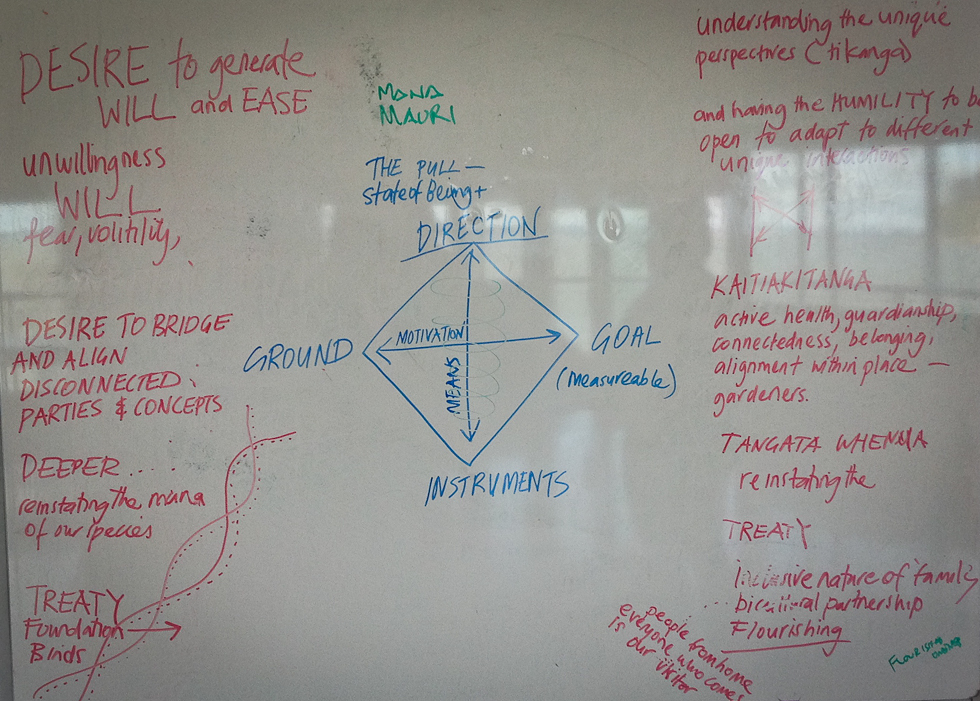 DESIRE to generate
WILL and EASE
unwillingness
WILL
fear, volitility,
DESIRE TO BRIDGE
AND ALIGN
DISCONNECTED
PARTIES & CONCEPTS
DEEPER ....
reinstating the mana
of our species
TREATY
Foundation
Binds
MANA
MAURI
THE PULL —
state of Being +
DIRECTION
GROUND
MOTIVATION
MEANS
GOAL
(measureable)
INSTRUMENTS
understanding the unique
perspectives (tikanga)
and having the HUMILITY to b
open to adapt to different
unique interactions
KAITIAKITANGA
active health, guardianship,
connectedness, belonging,
alignment within place —
gardeners.
TANGATA WHENUA
reinstating the
TREATY
nature of family
partnership
Flourishing
people from home
everyone who comes
is our visitor